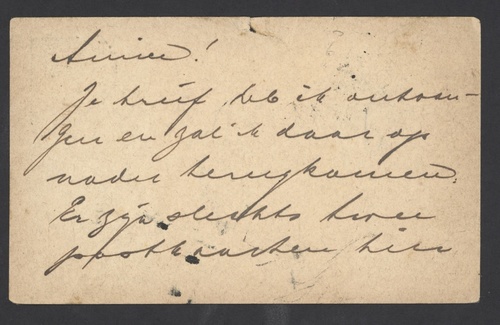 Amice!
Je brief heb ik ontvan-
gen en zal ik daar op
nader terugkomen.
Er zijn slechts twee
postkaarten hier